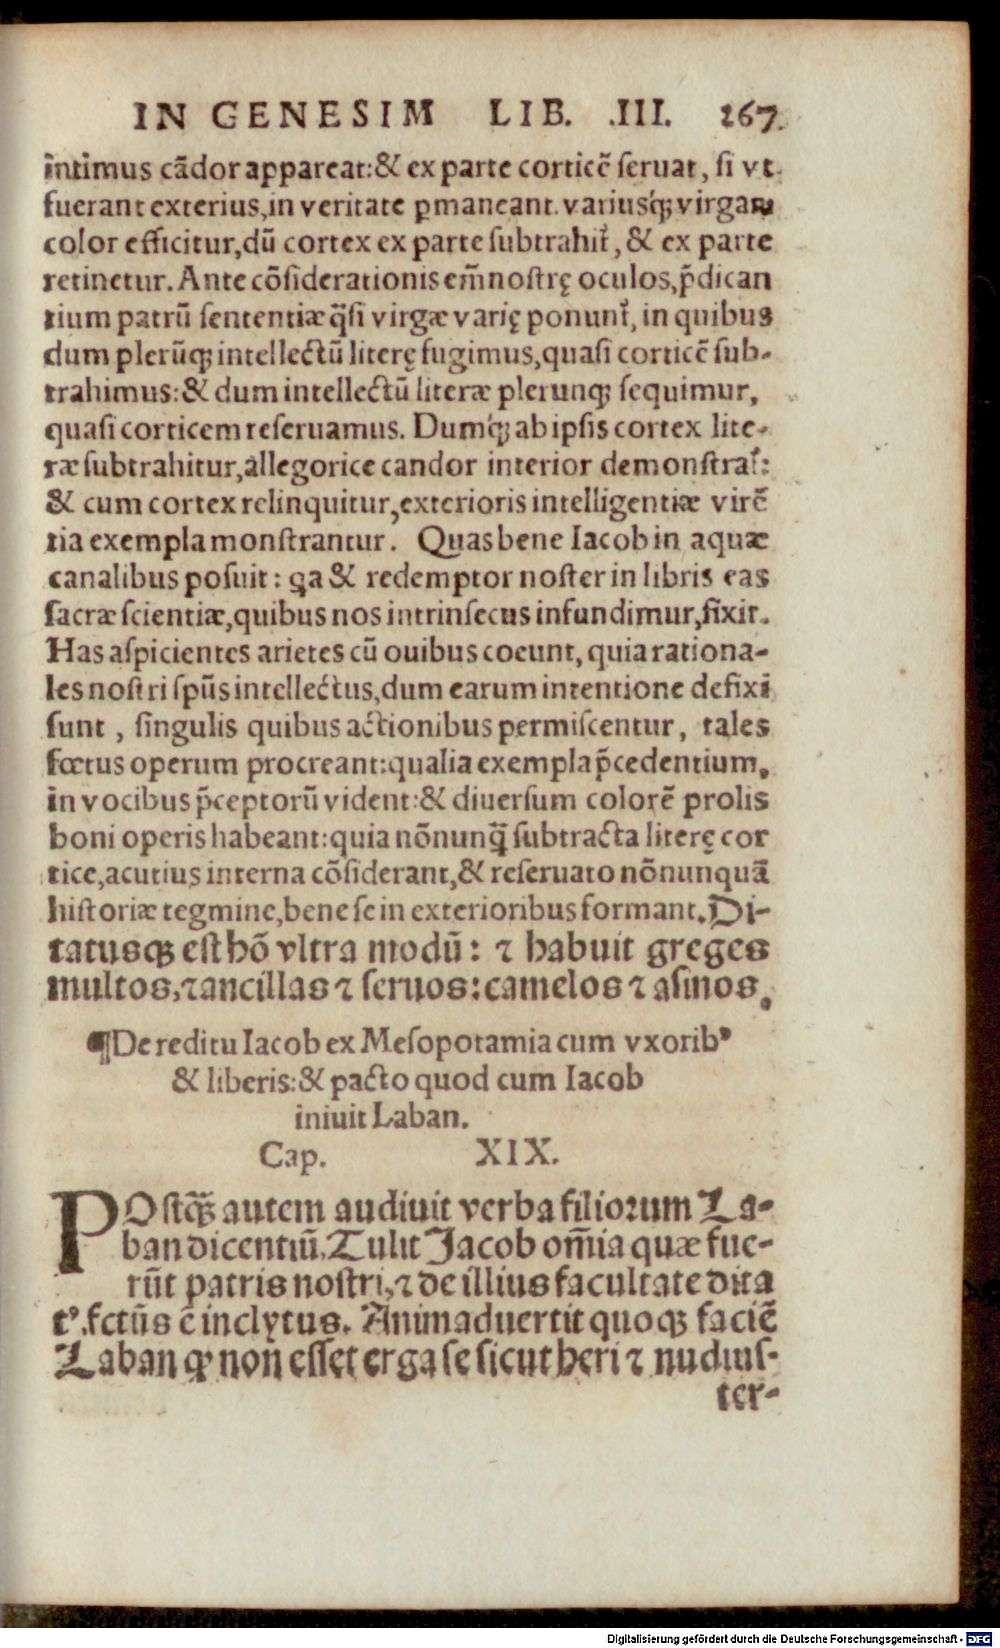 IN GENESIM LIB. .III. 267.
intimus cādor appareat:& ex parte corticē ſeruat, ſi vt
fuerant exterius,in veritate ꝑmaneant. variusq́ꝫ virgarū
color efficitur,dū cortex ex parte ſubtrahit᷑, & ex parte
retinetur. Ante cōſiderationis em̄ noſtrę oculos,p̄dican
tium patrū ſententiæ q̄ſi virgæ varię ponunt᷑, in quibus
dum plerūqꝫ intellectū literę fugimus,quaſi corticē ſub-
trahimus:& dum intellectū literæ plerunqꝫ ſequimur,
quaſi corticem reſeruamus. Dumq́ꝫ ab ipſis cortex lite-
ræ ſubtrahitur,allegorice candor interior demonſtrat᷑:
& cum cortex relinquitur,exterioris intelligentiæ virē
tia exempla monſtrantur. Quas bene Iacob in aquæ
canalibus poſuit: qa & redemptor noſter in libris eas
ſacræ ſcientiæ,quibus nos intrinſecus infundimur,fixit.
Has aſpicientes arietes cū ouibus coeunt, quia rationa-
les noſtri ſpūs intellectus,dum earum intentione defixi
ſunt , ſingulis quibus actionibus permiſcentur, tales
fœtus operum procreant:qualia exempla p̄cedentium,
in vocibus p̄ceptorū vident:& diuerſum colorē prolis
boni operis habeant:quia nōnunq̄ ſubtracta literę cor
tice,acutius interna cōſiderant,& reſeruato nōnunquā
hiſtoriæ tegmine,bene ſe in exterioribus formant. Di-
tatusqꝫ eſt hō vltra modū: ⁊ habuit greges
multos,⁊ ancillas ⁊ ſeruos: camelos ⁊ aſinos.
¶De reditu Iacob ex Meſopotamia cum vxoribꝰ
& liberis:& pacto quod cum Iacob
iniuit Laban.
Cap. XIX.
POſtq̄ꝫ autem audiuit verba filiorum La-
ban dicentiū, Tulit Jacob om̄ia quæ fue-
rūt patris noſtri,⁊ de illius facultate dita
tꝰ,fctūs ē inclytus. Animaduertit quoqꝫ faciē
Laban ꝙ non eſſet erga ſe ſicut heri ⁊ nudiuſ-
ter-
Digitalisierung gefördert durch die Deutsche Forschungsgemeinschaft - DFG